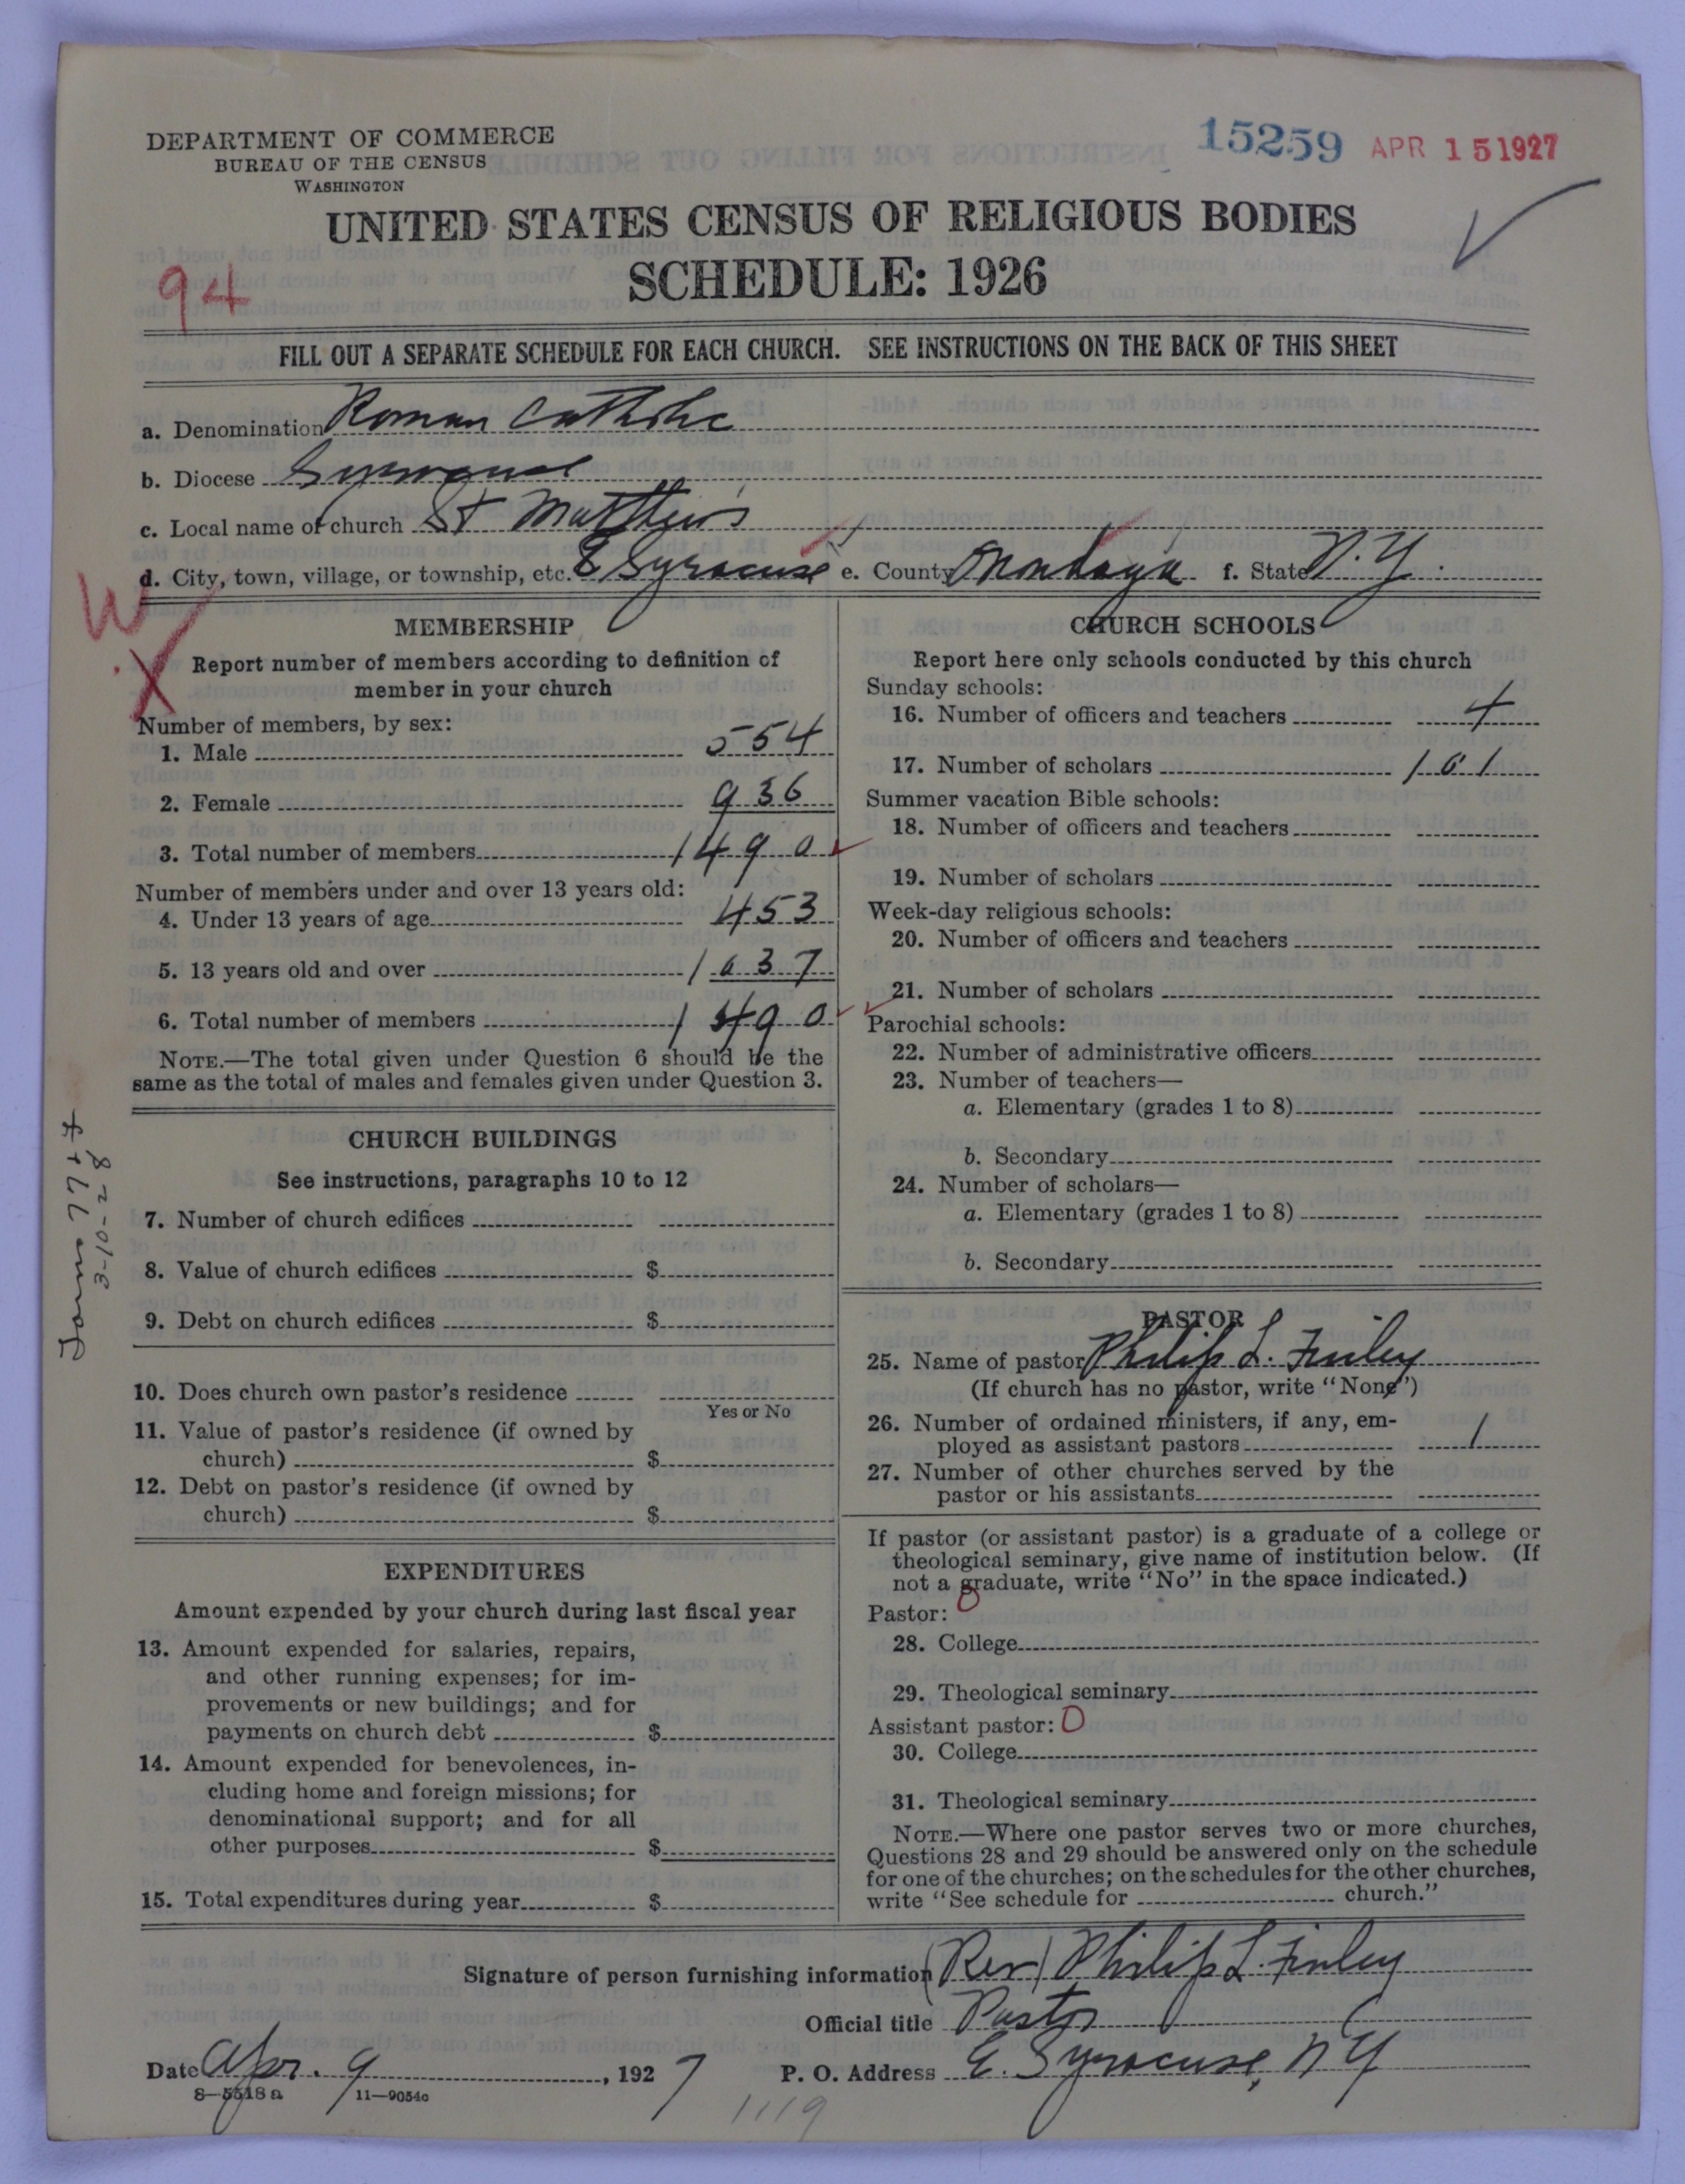 DEPARTMENT OF COMMERCE
BUREAU OF THE CENSUS
WASHINGTON
15259 APR 15 1927
UNITED STATES CENSUS OF RELIGIOUS BODIES
SCHEDULE: 1926
94
FILL OUT A SEPARATE SCHEDULE FOR EACH CHURCH. SEE INSTRUCTIONS ON THE BACK OF THIS SHEET
a. Denomination Roman Catholic
b. Diocese Syracuse
c. Local name of church St Matthew's
d. City, town, village, or township, etc. E Syracuse e. County Onondaga f. State N.Y.
W
X
MEMBERSHIP
Report number of members according to definition of
member in your church
Number of members, by sex:
1. Male 554
2. Female 936
3. Total number of members 1490
Number of members under and over 13 years old:
4. Under 13 years of age 453
5. 13 years old and over 1037
6. Total number of members 1490
NOTE.—The total given under Question 6 should be the
same as the total of males and females given under Question 3.
CHURCH BUILDINGS
See instructions, paragraphs 10 to 12
7. Number of church edifices
8. Value of church edifices $
9. Debt on church edifices $
10. Does church own pastor's residence
Yes or No
11. Value of pastor's residence (if owned by
church) $
12. Debt on pastor's residence (if owned by
church) $
EXPENDITURES
Amount expended by your church during last fiscal year
13. Amount expended for salaries, repairs,
and other running expenses; for im-
provements or new buildings; and for
payments on church debt $
14. Amount expended for benevolences, in-
cluding home and foreign missions; for
denominational support; and for all
other purposes $
15. Total expenditures during year $
3-10-28
CHURCH SCHOOLS
Report here only schools conducted by this church
Sunday schools:
16. Number of officers and teachers 4
17. Number of scholars 101
Summer vacation Bible schools:
18. Number of officers and teachers
19. Number of scholars
Week-day religious schools:
20. Number of officers and teachers
21. Number of scholars
Parochial schools:
22. Number of administrative officers
23. Number of teachers—
a. Elementary (grades 1 to 8)
b. Secondary
24. Number of scholars—
a. Elementary (grades 1 to 8)
b. Secondary
PASTOR
25. Name of pastor Philip L. Finley
(If church has no pastor, write "None")
26. Number of ordained ministers, if any, em-
ployed as assistant pastors 1
27. Number of other churches served by the
pastor or his assistants
If pastor (or assistant pastor) is a graduate of a college or
theological seminary, give name of institution below. (If
not a graduate, write "No" in the space indicated.)
Pastor: 0
28. College
29. Theological seminary
Assistant pastor: 0
30. College
31. Theological seminary
NOTE.—Where one pastor serves two or more churches,
Questions 28 and 29 should be answered only on the schedule
for one of the churches; on the schedules for the other churches,
write "See schedule for church."
Signature of person furnishing information (Rev) Philip L. Finley
Official title Pastor
Date Apr. 9, 1927 P. O. Address E. Syracuse, N Y
8—5518 a 11—9054c
1119